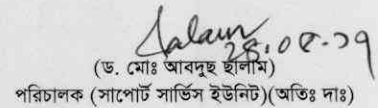 Salam
28.05.17
(ড. মোঃ আবদুছ ছালাম)
পরিচালক (সাপোর্ট সার্ভিস ইউনিট)(অতিঃ দাঃ)